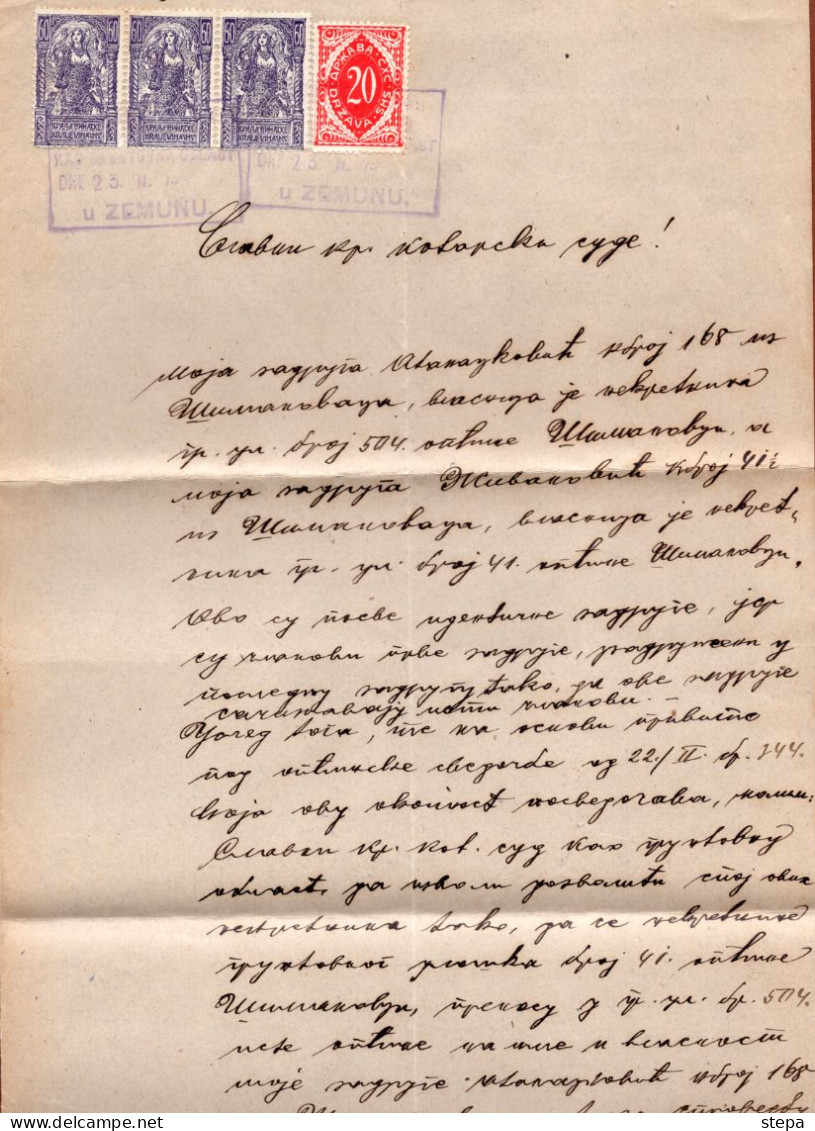 60 60 60 60 60 60
КРАЉЕВИНА СХС КРАЉЕВИНА СХС КРАЉЕВИНА СХС
KRALJEVINA SHS KRALJEVINA SHS KRALJEVINA SHS
ДРЖАВА СХС
20
DRŽAVA SHS
DNE 23. II.
u ZEMUNU.
DNE 23. II.
u ZEMUNU.
Славни кр. котарски суде!
Моја задруга Атанацковић кброј 168 из
Шимановаца, власница је некретнина
гр. ул. број 504. општине Шимановци, а
моја задруга Живановић кброј 41½
из Шимановаца, власница је некрет„
нина гр. ул. број 41. општине Шимановци.
Ово су посве идентичне задруге, јер
су чланови прве задруге, задружени у
последњу задругу тако, да ове задруге
сачињавају исти чланови.
Услед тога, те на основи привитнe
под општинске сведоџбе од 22./II. бр. 344.
која ову околност посведочава, молим:
Славни кр. кот. суд као грунтовну
област, да изволи дозволити спој ових
некретнина тако, да се некретнине
грунтовног улошка број 41. општине
Шимановци, преносу у гр. ул. бр. 504.
исте општине на име и власност
моје задруге Атанацковић кброј 168
stepa